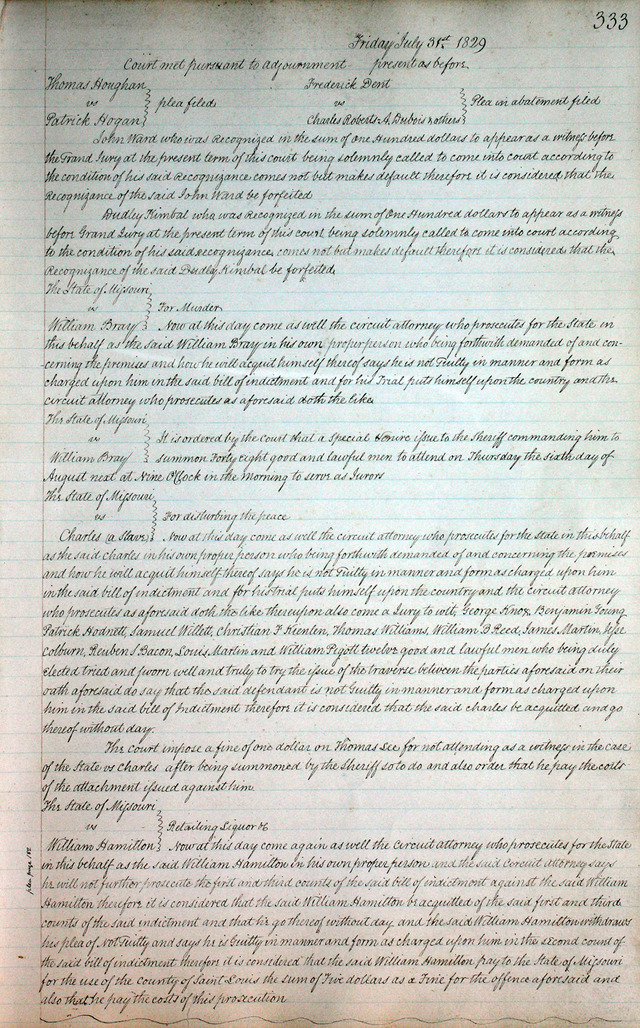 333
Friday July 31st 1829
Court met pursuant to adjournment present as before
Thomas Houghan Frederick Dent
vs plea filed vs Plea in abatement filed
Patrick Hogan Charles Roberts A. Dubois & others
John Ward who was Recognized in the sum of One Hundred dollars to appear as a witness before
the Grand Jury at the present term of this court being solemnly called to come into court according to
the condition of his said Recognizance comes not but makes default therefore it is considered that the
Recognizance of the said John Ward be forfeited
Dudley Kimbal who was Recognized in the sum of One Hundred dollars to appear as a witness
before Grand Jury at the present term of this court being solemnly called to come into court according
to the condition of his said recognizance, comes not but makes default therefore it is considered that the
Recognizance of the said Dudly Kimbal be forfeited
The State of Missouri
vs For Murder
William Bray Now at this day come as well the circuit attorney who prosecutes for the State in
this behalf as the said William Bray in his own proper person who being forthwith demanded of and con-
-cerning the premises and how he will acquit himself thereof says he is not Guilty in manner and form as
charged upon him in the said bill of indictment and for his Trial puts himself upon the country and the
circuit attorney who prosecutes as aforesaid doth the like
The State of Missouri
vs It is ordered by the court that a Special Venire issue to the Sheriff commanding him to
William Bray summon Forty eight good and lawful men to attend on Thursday the sixth day of
August next at Nine O'Clock in the Morning to serve as Jurors
The State of Missouri
vs For disturbing the peace
Charles (a Slave) Now at this day come as well the circuit attorney who prosecutes for the state in this behalf
as the said Charles in his own proper person who being forthwith demanded of and concerning the premises
and how he will acquit himself thereof says he is not Guilty in manner and form as charged upon him
in the said bill of indictment and for his trial puts himself upon the country and the circuit attorney
who prosecutes as aforesaid doth the like thereupon also come a Jury to wit, George Knox, Benjamin Young
Patrick Hodnett, Samuel Willett, Christian F Kienlen, Thomas Williams, William B Reed, James Martin, Jesse
Colburn, Reuben S Bacon, Louis Martin and William Pigott twelve good and lawful men who being duly
elected tried and sworn well and truly to try the issue of the traverse between the parties aforesaid on their
oath aforesaid do say that the said defendant is not guilty in manner and form as charged upon
him in the said bill of Indictment therefore it is considered that the said charles be acquitted and go
thereof without day.
The Court impose a fine of one dollar on Thomas Lee for not attending as a witness in the case
of the State vs Charles after being summoned by the Sheriff so to do and also order that he pay the costs
of the attachment issued against him.
The State of Missouri
vs Retailing Liquor &c
William Hamilton Now at this day come again as well the circuit attorney who prosecutes for the State
in this behalf as the said William Hamilton in his own proper person and the said Circuit attorney says
he will not further prosecute the first and third counts of the said bill of indictment against the said William
Hamilton therefore it is considered that the said William Hamilton be acquitted of the said first and third
counts of the said indictment and that he go thereof without day and the said William Hamilton withdraws
his plea of not Guilty and says he is Guilty in manner and form as charged upon him in the second count of
the said bill of indictment therefore it is considered that the said William Hamilton pay to the State of Missouri
for the use of the county of Saint Louis the sum of Five dollars as a Fine for the offence aforesaid and
also that he pay the costs of this prosecution
plea page